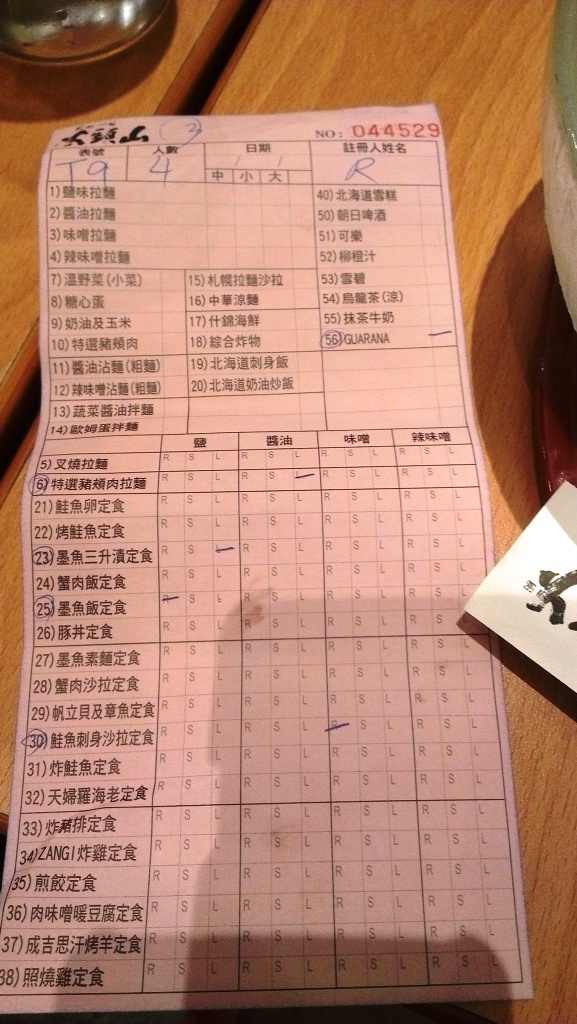 火頭山 3 NO: 044529
表號 人數 日期 註冊人姓名
T9 4 / / R
中 小 大
1)鹽味拉麵
2)醬油拉麵
3)味噌拉麵
4)辣味噌拉麵
40)北海道雪糕
50)朝日啤酒
51)可樂
52)柳橙汁
53)雪碧
54)烏龍茶(涼)
55)抹茶牛奶
56)GUARANA —
7)溫野菜(小菜)
8)糖心蛋
9)奶油及玉米
10)特選豬頰肉
15)札幌拉麵沙拉
16)中華涼麵
17)什錦海鮮
18)綜合炸物
11)醬油沾麵(粗麵)
12)辣味噌沾麵(粗麵)
13)蔬菜醬油拌麵
14)歐姆蛋拌麵
19)北海道刺身飯
20)北海道奶油炒飯
鹽 醬油 味噌 辣味噌
5)叉燒拉麵 R S L R S L R S L R S L
6)特選豬頰肉拉麵 R S L R S L R S L R S L
21)鮭魚卵定食 R S L R S L R S L R S L
22)烤鮭魚定食 R S L R S L R S L R S L
23)墨魚三升漬定食 R S L R S L R S L R S L
24)蟹肉飯定食 R S L R S L R S L R S L
25)墨魚飯定食 R S L R S L R S L R S L
26)豚丼定食 R S L R S L R S L R S L
27)墨魚素麵定食 R S L R S L R S L R S L
28)蟹肉沙拉定食 R S L R S L R S L R S L
29)帆立貝及章魚定食 R S L R S L R S L R S L
30)鮭魚刺身沙拉定食 R S L R S L R S L R S L
31)炸鮭魚定食 R S L R S L R S L R S L
32)天婦羅海老定食 R S L R S L R S L R S L
33)炸豬排定食 R S L R S L R S L R S L
34)ZANGI炸雞定食 R S L R S L R S L R S L
35)煎餃定食 R S L R S L R S L R S L
36)肉味噌暖豆腐定食 R S L R S L R S L R S L
37)成吉思汗烤羊定食 R S L R S L R S L R S L
38)照燒雞定食 R S L R S L R S L R S L